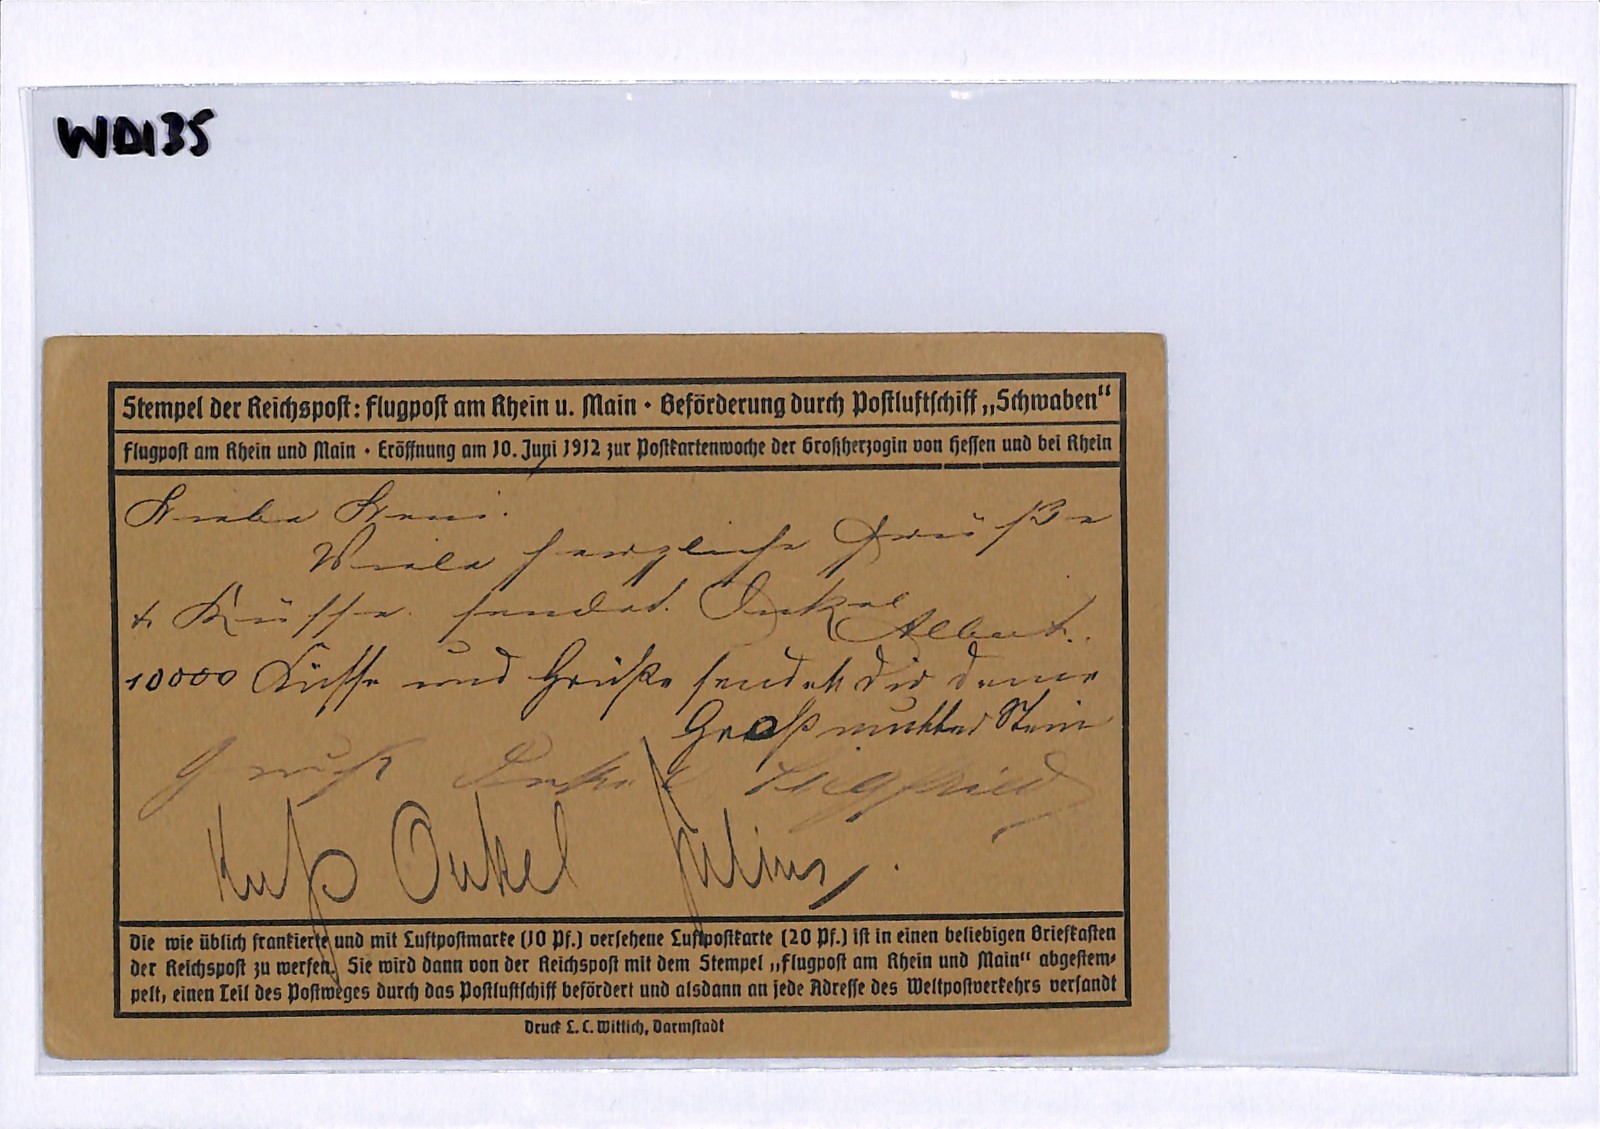 WD135
Stempel der Reichspost: Flugpost am Rhein u. Main · Beförderung durch Postluftschiff „Schwaben“
Flugpost am Rhein und Main · Eröffnung am 10. Juni 1912 zur Postkartenwoche der Großherzogin von Hessen und bei Rhein
Viele herzliche Grüße
+ Küsse sendet Onkel
Albert.
10000 Küsse und Grüße sendet Dir deine
Großmutter Stein
Gruß Onkel Siegfried
Kuß Onkel Julius.
Die wie üblich frankierte und mit Luftpostmarke (10 Pf.) versehene Luftpostkarte (20 Pf.) ist in einen beliebigen Briefkasten
der Reichspost zu werfen. Sie wird dann von der Reichspost mit dem Stempel „Flugpost am Rhein und Main“ abgestem-
pelt, einen Teil des Postweges durch das Postluftschiff befördert und alsdann an jede Adresse des Weltpostverkehrs versandt
Druck L. C. Wittich, Darmstadt